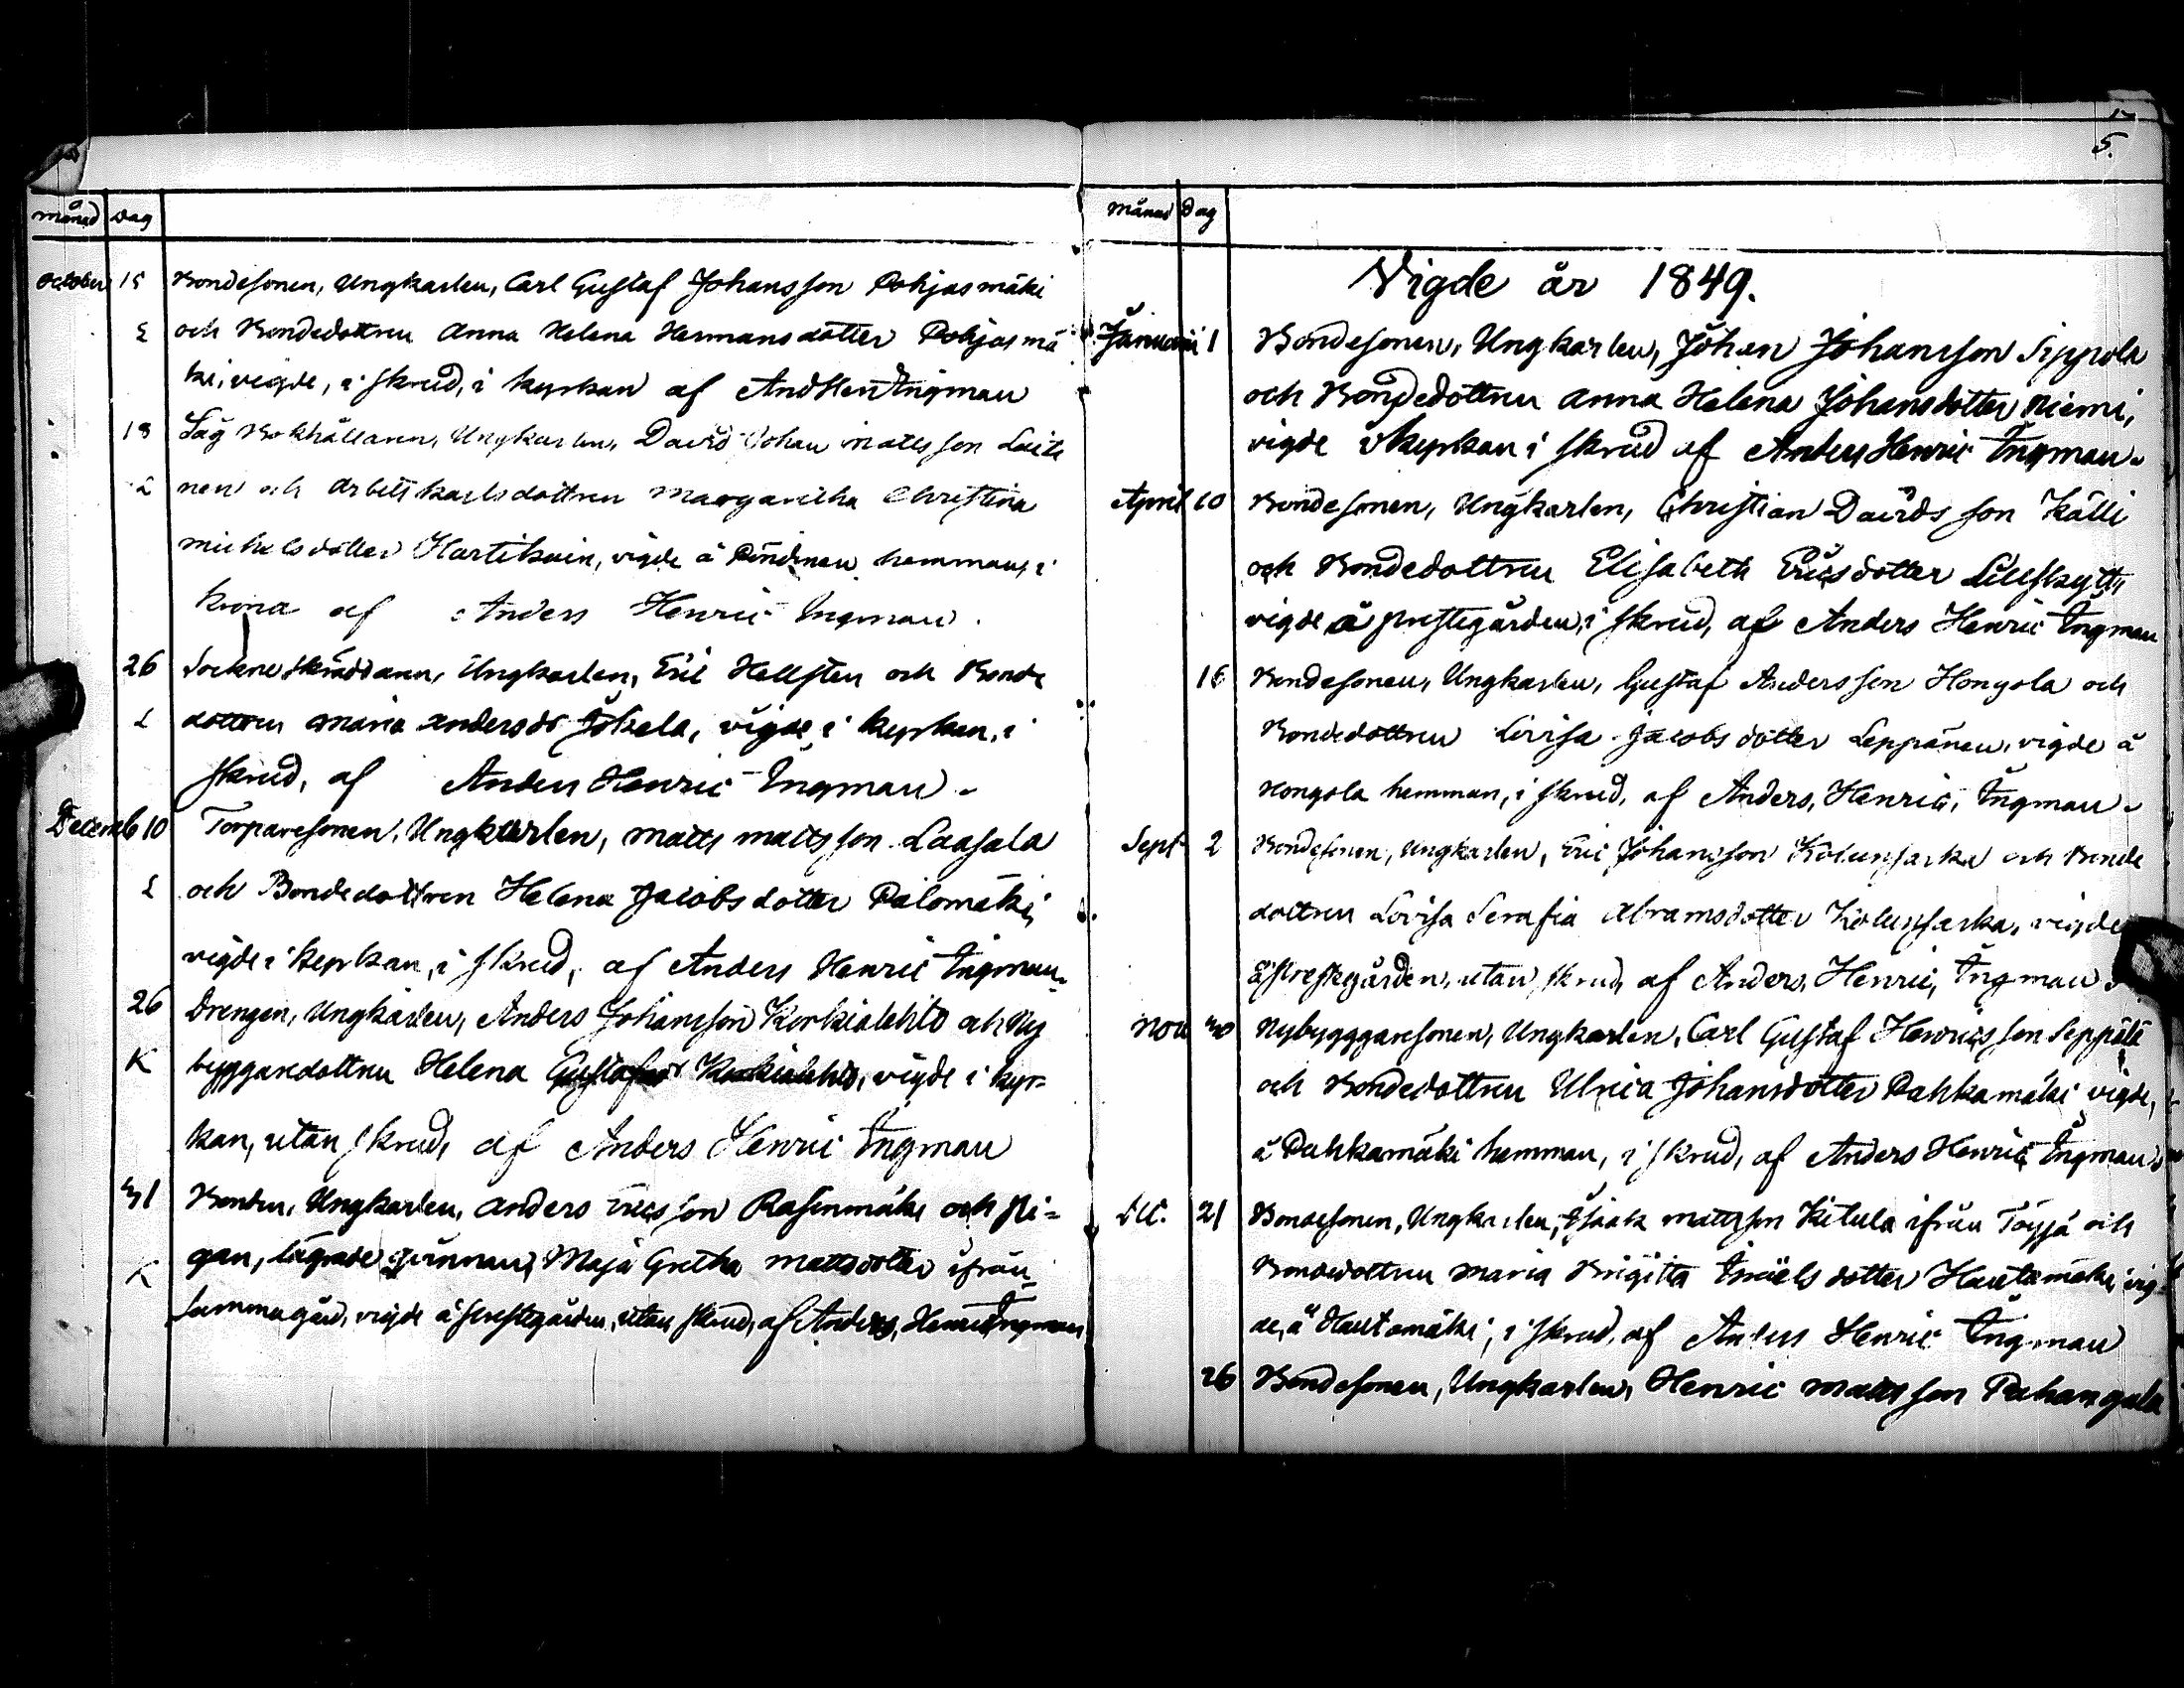 5.
månad Dag
October 15 Bondesonen, Ungkarlen, Carl Gustaf Johansson Pohjasmäki
och Bondedottren Anna Helena Hermansdotter Pohjasmä
ki, vigde, i skrud, i kyrkan af And Hen Ingman
18 Såg Bokhållaren, Ungkarlen, David Johan Mattsson Laiti
nen och Arbetskarlsdottren Margaretha Christina
Michelsdotter Hartikain, vigde å hemman, i
krona af Anders Henric Ingman.
26 Sockneskräddaren, Ungkarlen, Eric Hellsten och Bonde
L dottren Maria Andersdr Jokela, vigde i kyrkan, i
skrud, af Anders Henric Ingman.
Decemb 10 Torparesonen, Ungkarlen, Matts Mattsson Laasala
L och Bondedottren Helena Jacobsdotter Palomäki,
vigde i kyrkan, i skrud, af Anders Henric Ingman.
26 Drengen, Ungkarlen, Anders Johansson Korkialehto och Ny
K byggaredottren Helena Gustafsdr Korkialehto, vigde i kyr-
kan, utan skrud, af Anders Henric Ingman
31 Bonden, Ungkarlen, Anders Ericsson Rasinmäki och Pi-
K gan, lägrade qvinnan, Maja Gretha Mattsdotter ifrån
samma gård, vigde å prestegården, utan skrud, af Anders, Henric Ingman
Månad Dag
Vigde år 1849.
Januarii 1 Bondesonen, Ungkarlen, Johan Johansson Sippola
och Bondedottren Anna Helena Johansdotter Niemi,
vigde i kyrkan i skrud af Anders Henric Ingman.
April 10 Bondesonen, Ungkarlen, Christian Davidsson Källi
och Bondedottren Elisabeth Ericsdotter Lillskytts
vigde å prestegården, i skrud, af Anders Henric Ingman
16 Bondesonen, Ungkarlen, Gustaf Andersson Hongola och
Bondedottren Lovisa Jacobsdotter Leppänen, vigde å
Hongola hemman, i skrud, af Anders, Henric, Ingman.
Sept 2 Bondesonen, Ungkarlen, Eric Johansson Kolunsarka och Bonde
dottren Lovisa Serafia Abramsdotter Kolunsarka, vigde
å prestegården, utan skrud, af Anders, Henric, Ingman
Nov 30 Nybyggaresonen, Ungkarlen, Carl Gustaf Henricsson Seppälä
och Bondedottren Ulrica Johansdotter Pahkamäki vigde,
å Pahkamäki hemman, i skrud, af Anders Henric Ingman
Dec. 21 Bondesonen, Ungkarlen, Isaak Mattsson Kitula ifrån Töysä och
Bondedottren Maria Brigitta Israelsdotter Hautamäki vig-
de, å Hautamäki, i skrud, af Anders Henric Ingman
26 Bondesonen, Ungkarlen, Henric Mattsson Pahangala